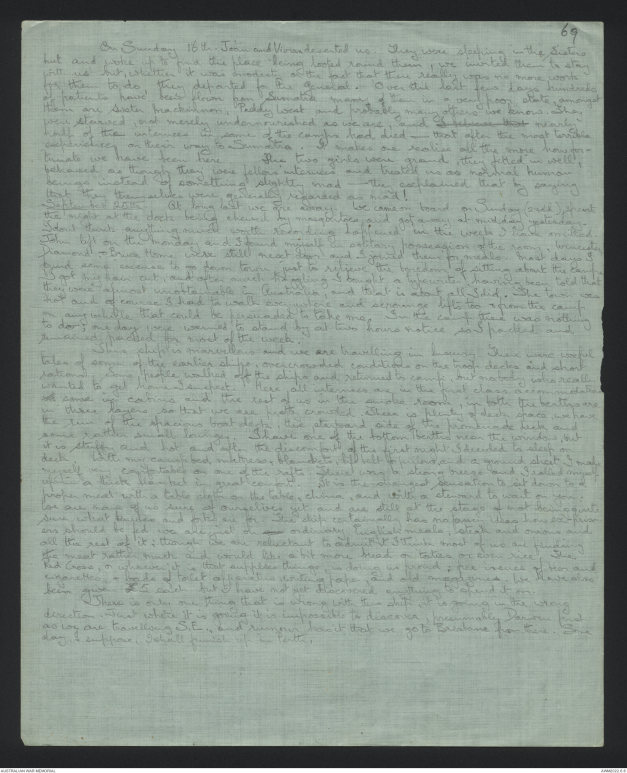 69
On Sunday 16th. Joan and Vivian deserted us. They were sleeping in the Sisters
hut and woke up to find the place being looted round them, we invited them to stay
with us but, whether it was modesty or the fact that there really was no more work
for them to do they departed for the General. Over the last few days hundreds
of patients have been down from Sumatra, many of them in a very poor state, amongst
them are Sister Mackinnon, Paddy West and probably many others we know. They
were starved not merely undernourished as we are, and nearly
half of the internees in some of the camps had died — that after the most terrible
experiences on their way to Sumatra. It makes one realise all the more how for-
tunate we have been here. The two girls were grand, they fitted in well,
behaved as though they were fellow internees and treated us as normal human
beings instead of something slightly mad — they explained that by saying
that they themselves were generally regarded as mad!
September 25th. At long last we are away. We came on board on Sunday (23rd) spent
the night at the docks being chewed by mosquitoes and got away at midday yesterday.
I don't think anything much worth recording happened in the week I have omitted.
John left on the Monday and I found myself in solitary possession of the room,
Diamond were still next door and I joined them for meals. Most days I
found some excuse to go down town, just to relieve the boredom of sitting about the camp.
I got my hair cut, and after much haggling I bought a typewriter, having been told that
they were almost unobtainable in Australia, and that is about all I did. The town was
hot and of course I had to walk everywhere and scrounge lifts to & from the camp
on any vehicle that could be persuaded to take me. In the camp there was nothing
to do; one day we were warned to stand by at two hours notice so I packed and
remained packed for most of the week.
This ship is marvellous and we are travelling in luxury. There were woeful
tales of some of the earlier ships, overcrowded conditions on the troop decks and short
rations. Some people walked off the ships and returned to camp, but nobody who really
wanted to get home I suspect. Here all internees are in the first class accommodation
some in cabins and the rest of us in the smoke room, in both the berths are
in three layers so that we are pretty crowded. There is plenty of deck space, we have
the run of the spacious boat deck, the starboard side of the promenade deck and
some rather small lounges. I have one of the bottom berths near the window, but
it is stuffy and hot and after the discomfort of the first night I decided to sleep on
deck. With my campbed, mattress, blanket, life belt for pillow, and a ground sheet I made
myself very comfortable on one of the rafts. There was a strong breeze and I rolled myself
up in a thick blanket in great comfort. It is the strangest sensation to sit down to a
proper meal with a table cloth on the table, china, and with a steward to wait on you.
We are none of us sure of ourselves yet and are still at the stage of not being quite
sure what knives and forks are for. The ship certainly has no fancy ideas how ex-prison-
ers should be fed: we are put on ordinary English meals, steak and onions and
all the rest of it; though I am reluctant to admit it I think most of us are finding
the meat rather much and would like a bit more bread or taties or even rice. The
Red Cross, or whoever it is that supplies things, is doing us proud; free issues of beer and
cigarettes, a bag of toilet apparatus, writing paper, and old magazines. We have also
been given £5 each but I have not yet discovered anything to spend it on.
There is only one thing that is wrong with this ship, it is going in the wrong
direction. Just where it is going it is impossible to discover, presumably Darwin first
as we are travelling S.E., and rumour has it that we go to Brisbane from there. Some
day, I suppose, I shall finish up in Perth.
AUSTRALIAN WAR MEMORIAL